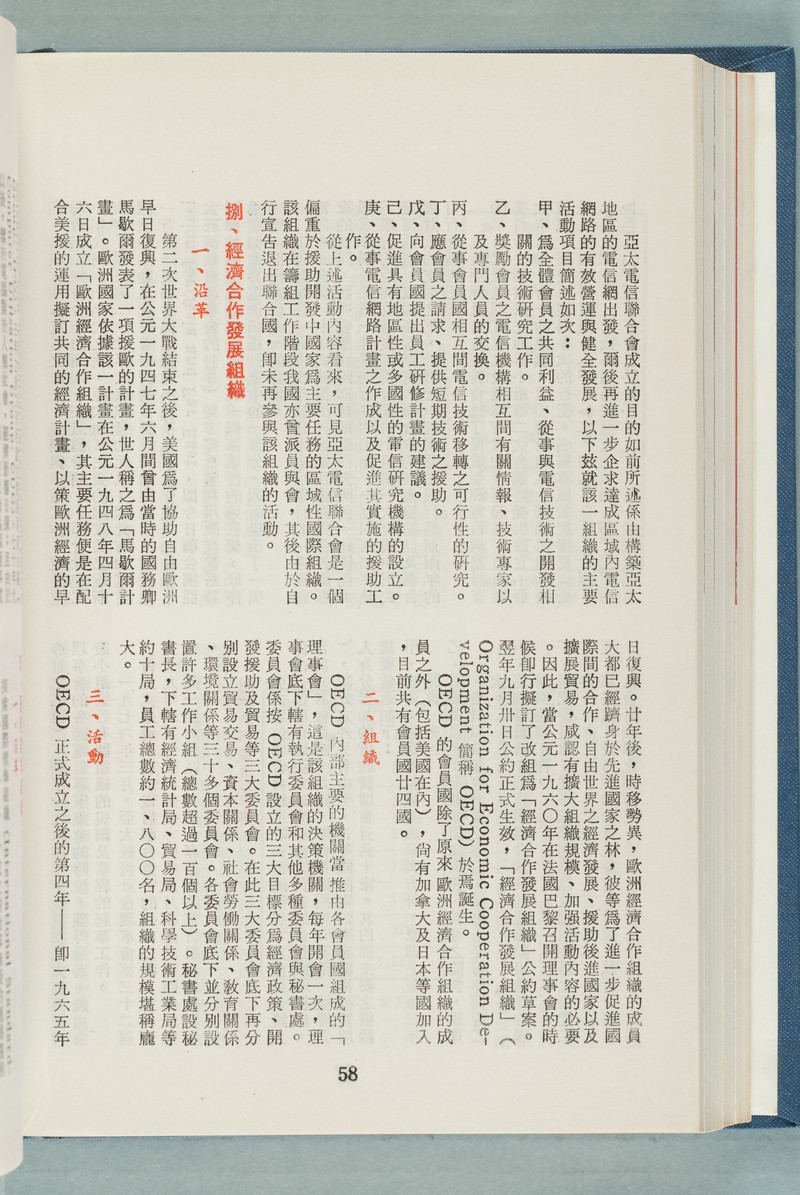 亞太電信聯合會成立的目的如前所述係由構築亞太
地區的電信網出發，爾後再進一步企求達成區域內電信
網路的有效營運與健全發展，以下玆就該一組織的主要
活動項目簡述如次：
甲、爲全體會員之共同利益、從事與電信技術之開發相
關的技術研究工作。
乙、獎勵會員之電信機構相互間有關情報、技術專家以
及專門人員的交換。
丙、從事會員國相互間電信技術移轉之可行性的研究。
丁、應會員之請求、提供短期技術之援助。
戊、向會員國提出員工研修計畫的建議。
己、促進具有地區性或多國性的電信研究機構的設立。
庚、從事電信網路計畫之作成以及促進其實施的援助工
作。
從上述活動內容看來，可見亞太電信聯合會是一個
偏重於援助開發中國家爲主要任務的區域性國際組織。
該組織在籌組工作階段我國亦曾派員與會，其後由於自
行宣告退出聯合國，卽未再參與該組織的活動。
捌、經濟合作發展組織
一、沿革
第二次世界大戰結束之後，美國爲了協助自由歐洲
早日復興，在公元一九四七年六月間曾由當時的國務卿
馬歇爾發表了一項援歐的計畫，世人稱之爲「馬歇爾計
畫」。歐洲國家依據該一計畫在公元一九四八年四月十
六日成立「歐洲經濟合作組織」，其主要任務便是在配
合美援的運用擬訂共同的經濟計畫、以策歐洲經濟的早
日復興。廿年後，時移勢異，歐洲經濟合作組織的成員
大都已經躋身於先進國家之林，彼等爲了進一步促進國
際間的合作、自由世界之經濟發展、援助後進國家以及
擴展貿易，咸認有擴大組織規模、加强活動內容的必要
。因此，當公元一九六〇年在法國巴黎召開理事會的時
候卽行擬訂了改組爲「經濟合作發展組織」公約草案。
翌年九月卅日公約正式生效，「經濟合作發展組織」（
Organization for Economic Cooperation De-
velopment 簡稱 OECD）於焉誕生。
OECD 的會員國除了原來歐洲經濟合作組織的成
員之外（包括美國在內），尙有加拿大及日本等國加入
，目前共有會員國廿四國。
二、組織
OECD 內部主要的機關當推由各會員國組成的「
理事會」，這是該組織的決策機關，每年開會一次，理
事會底下轄有執行委員會和其他多種委員會與秘書處。
委員會係按 OECD 設立的三大目標分爲經濟政策、開
發援助及貿易等三大委員會。在此三大委員會底下再分
別設立貿易交易、資本關係、社會勞働關係、敎育關係
、環境關係等三十多個委員會。各委員會底下並分別設
置許多工作小組（總數超過一百個以上）。秘書處設秘
書長，下轄有經濟統計局、貿易局、科學技術工業局等
約十局，員工總數約一、八〇〇名，組織的規模堪稱龐
大。
三、活動
OECD 正式成立之後的第四年——卽一九六五年
58